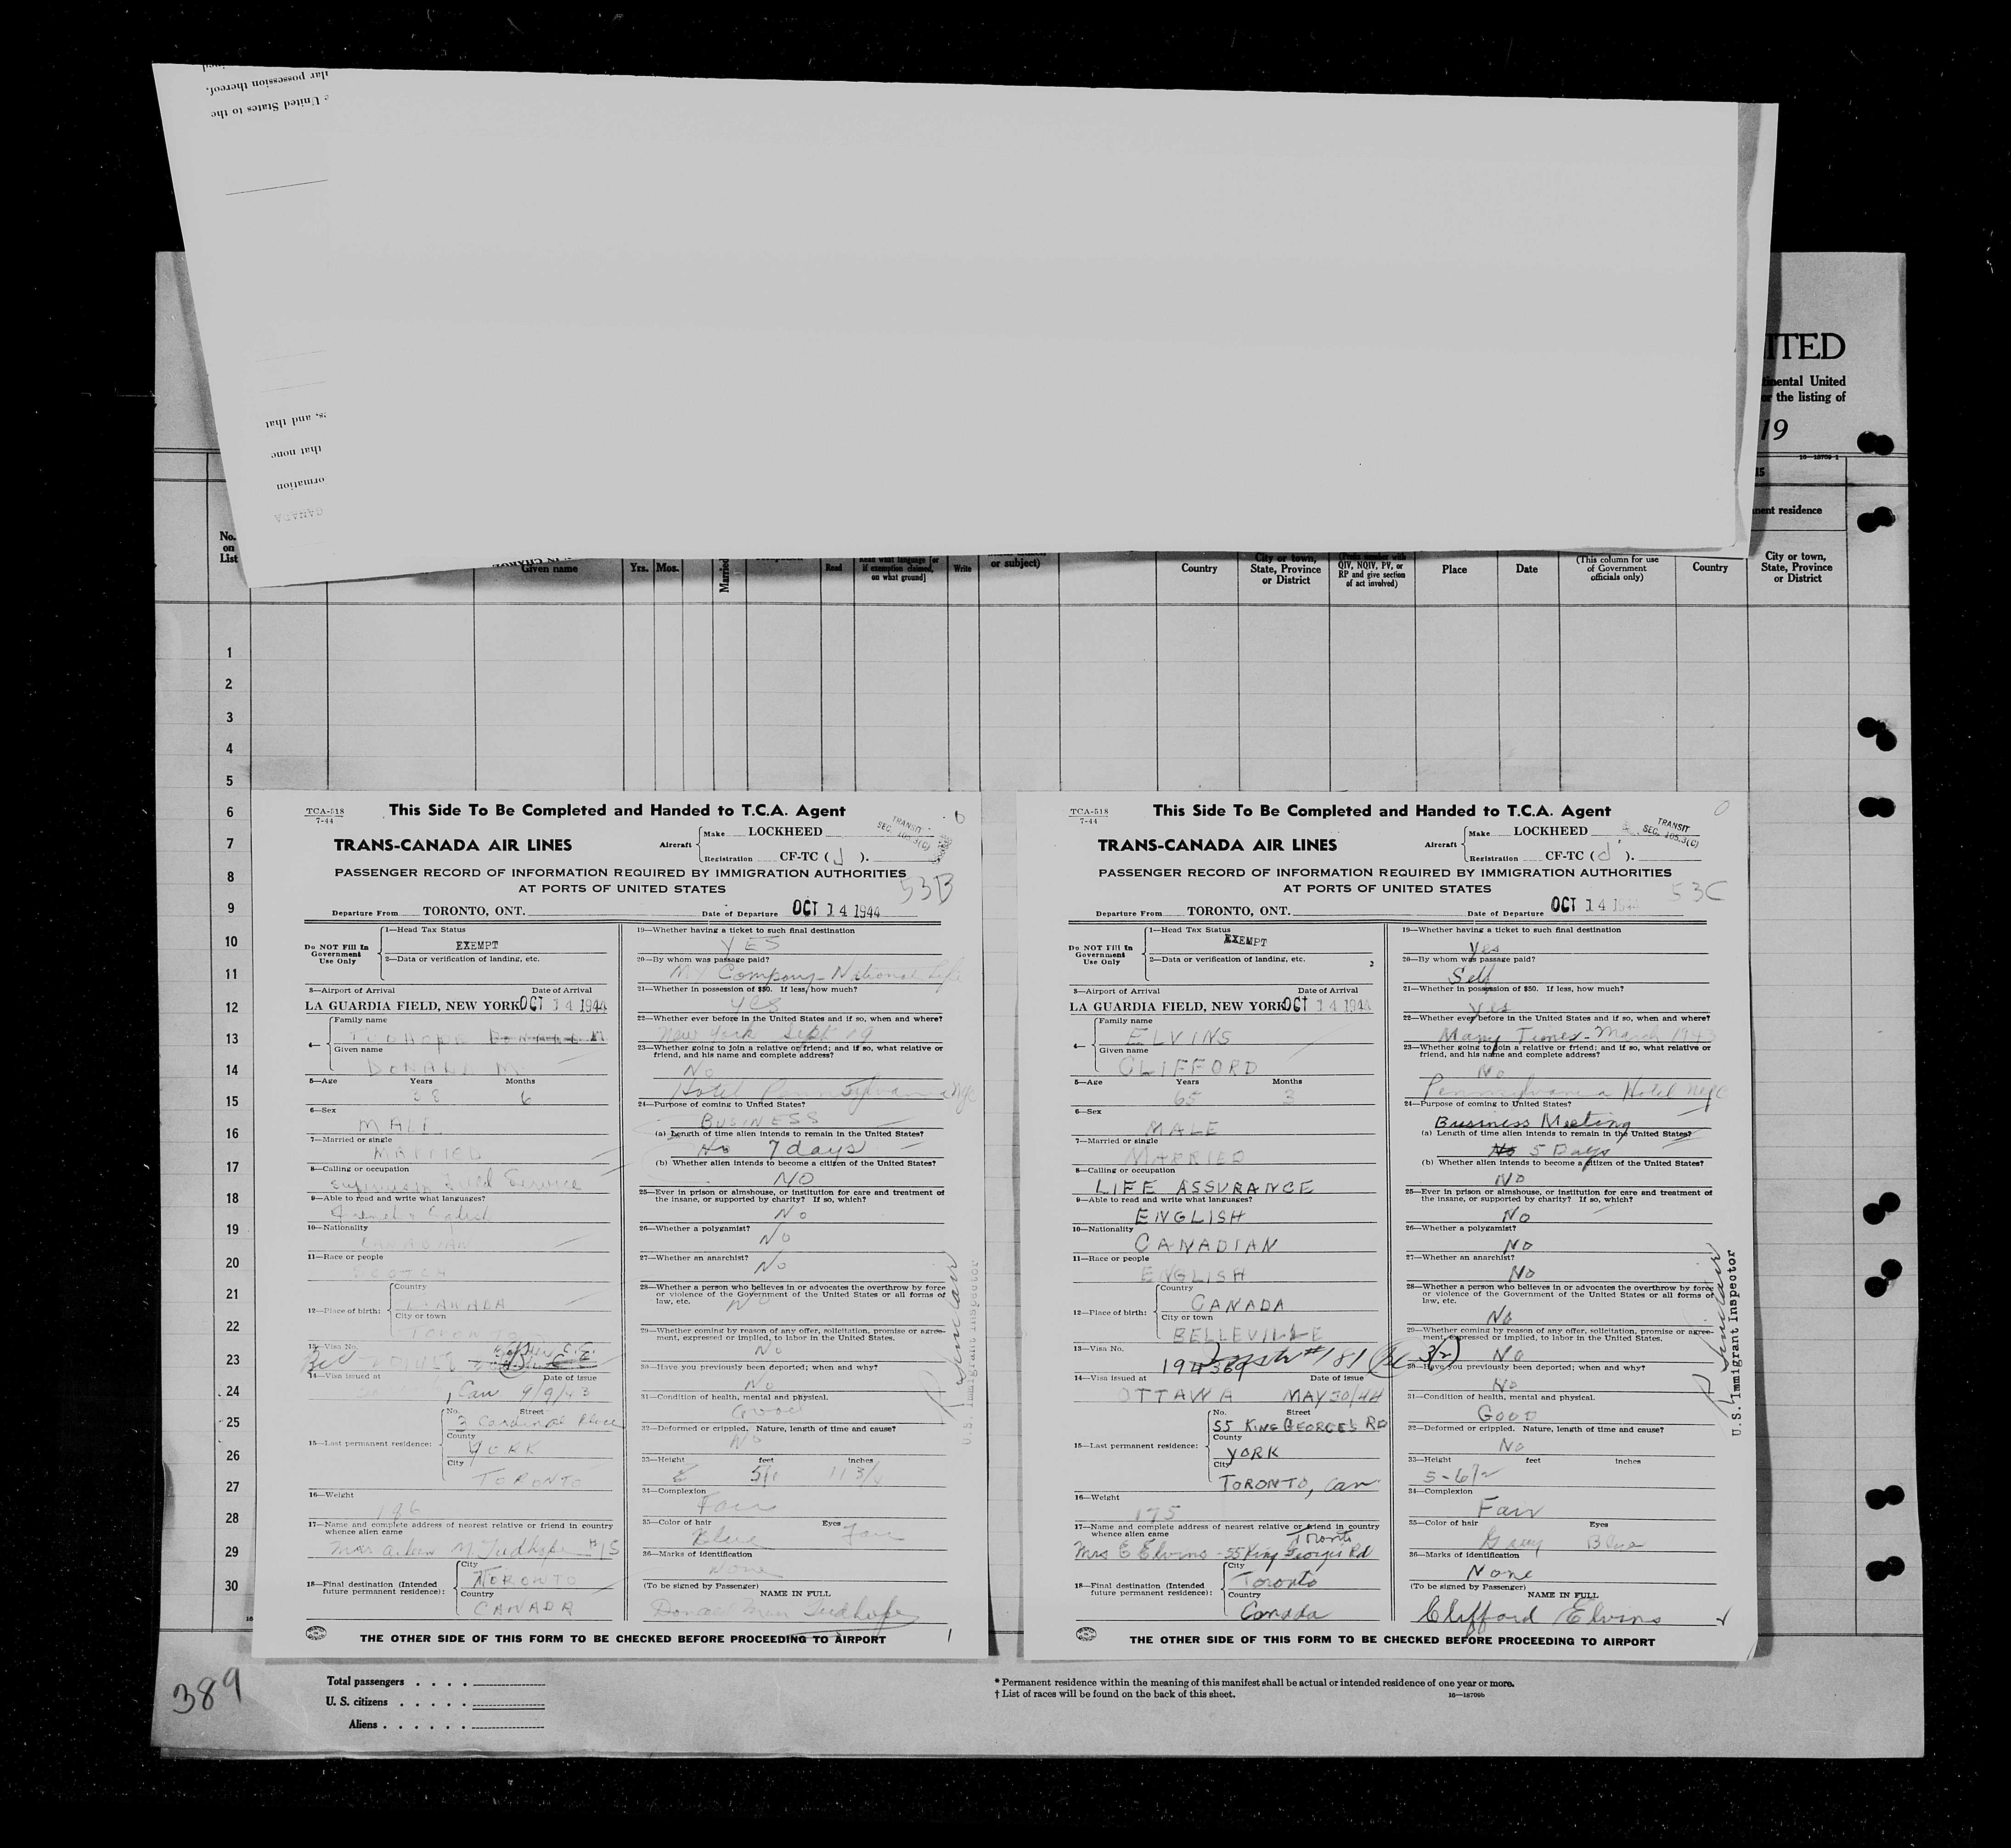 ITED
tinental United
or the listing of
19
16—18709-1
15
nent residence
No.
on
List
Given name
Yrs. Mos.
Married
Read
Read what language [or
if exemption claimed,
on what ground]
Write
or subject)
Country
City or town,
State, Province
or District
QIV, NQIV, PV, or
RP and give section
of act involved)
Place
Date
(This column for use
of Government
officials only)
Country
City or town,
State, Province
or District
1
2
3
4
5
6
7
8
9
10
11
12
13
14
15
16
17
18
19
20
21
22
23
24
25
26
27
28
29
30
TCA-518
7-44
This Side To Be Completed and Handed to T.C.A. Agent
TRANS-CANADA AIR LINES
Aircraft
Make LOCKHEED
Registration CF-TC ( J ).
TRANSIT
SEC. 105.3(C)
PASSENGER RECORD OF INFORMATION REQUIRED BY IMMIGRATION AUTHORITIES
AT PORTS OF UNITED STATES
53B
Departure From TORONTO, ONT. Date of Departure OCT 14 1944
Do NOT Fill In
Government
Use Only
1—Head Tax Status
EXEMPT
2—Data or verification of landing, etc.
3—Airport of Arrival Date of Arrival
LA GUARDIA FIELD, NEW YORK OCT 14 1944
4—
Family name
TUDHOPE
Given name
DONALD M.
5—Age Years Months
38 6
6—Sex
MALE
7—Married or single
MARRIED
8—Calling or occupation
Supervisor Field Service
9—Able to read and write what languages?
French & English
10—Nationality
CANADIAN
11—Race or people
SCOTCH
12—Place of birth:
Country
CANADA
City or town
TORONTO
13—Visa No.
14—Visa issued at Date of issue
, Can 9/9/43
15—Last permanent residence:
No. Street
3 Cardinal Place
County
YORK
City
TORONTO
16—Weight
196
17—Name and complete address of nearest relative or friend in country
whence alien came
Mrs M. Tudhope #15
18—Final destination (Intended
future permanent residence):
City
TORONTO
Country
CANADA
19—Whether having a ticket to such final destination
YES
20—By whom was passage paid?
My Company - National Life
21—Whether in possession of $50. If less, how much?
YES
22—Whether ever before in the United States and if so, when and where?
New York Sept 19
23—Whether going to join a relative or friend; and if so, what relative or
friend, and his name and complete address?
No
Hotel Pennsylvania NYC
24—Purpose of coming to United States?
BUSINESS
(a) Length of time alien intends to remain in the United States?
No 7 days
(b) Whether alien intends to become a citizen of the United States?
NO
25—Ever in prison or almshouse, or institution for care and treatment of
the insane, or supported by charity? If so, which?
No
26—Whether a polygamist?
No
27—Whether an anarchist?
No
28—Whether a person who believes in or advocates the overthrow by force
or violence of the Government of the United States or all forms of
law, etc.
No
29—Whether coming by reason of any offer, solicitation, promise or agree-
ment, expressed or implied, to labor in the United States.
No
30—Have you previously been deported; when and why?
No
31—Condition of health, mental and physical.
Good
32—Deformed or crippled. Nature, length of time and cause?
No
33—Height feet inches
5 11 3/4
34—Complexion
Fair
35—Color of hair Eyes
Blue Fair
36—Marks of identification
None
(To be signed by Passenger)
NAME IN FULL
Donald Tudhope
U.S. Immigrant Inspector
THE OTHER SIDE OF THIS FORM TO BE CHECKED BEFORE PROCEEDING TO AIRPORT
TCA-518
7-44
This Side To Be Completed and Handed to T.C.A. Agent
TRANS-CANADA AIR LINES
Aircraft
Make LOCKHEED
Registration CF-TC ( J ).
TRANSIT
SEC. 105.3(C)
PASSENGER RECORD OF INFORMATION REQUIRED BY IMMIGRATION AUTHORITIES
AT PORTS OF UNITED STATES
53C
Departure From TORONTO, ONT. Date of Departure OCT 14 1944
Do NOT Fill In
Government
Use Only
1—Head Tax Status
EXEMPT
2—Data or verification of landing, etc.
3—Airport of Arrival Date of Arrival
LA GUARDIA FIELD, NEW YORK OCT 14 1944
4—
Family name
ELVINS
Given name
CLIFFORD
5—Age Years Months
65 3
6—Sex
MALE
7—Married or single
MARRIED
8—Calling or occupation
LIFE ASSURANCE
9—Able to read and write what languages?
ENGLISH
10—Nationality
CANADIAN
11—Race or people
ENGLISH
12—Place of birth:
Country
CANADA
City or town
BELLEVILLE
13—Visa No.
194369 #181
14—Visa issued at Date of issue
OTTAWA MAY 30/44
15—Last permanent residence:
No. Street
55 KING GEORGE'S RD
County
YORK
City
TORONTO, Can
16—Weight
175
17—Name and complete address of nearest relative or friend in country
whence alien came
Toronto
Mrs E Elvins - 55 King George's Rd
18—Final destination (Intended
future permanent residence):
City
Toronto
Country
Canada
19—Whether having a ticket to such final destination
Yes
20—By whom was passage paid?
Self
21—Whether in possession of $50. If less, how much?
Yes
22—Whether ever before in the United States and if so, when and where?
Many Times - March 1943
23—Whether going to join a relative or friend; and if so, what relative or
friend, and his name and complete address?
No
Pennsylvania Hotel NYC
24—Purpose of coming to United States?
Business Meeting
(a) Length of time alien intends to remain in the United States?
No 5 Days
(b) Whether alien intends to become a citizen of the United States?
No
25—Ever in prison or almshouse, or institution for care and treatment of
the insane, or supported by charity? If so, which?
No
26—Whether a polygamist?
No
27—Whether an anarchist?
No
28—Whether a person who believes in or advocates the overthrow by force
or violence of the Government of the United States or all forms of
law, etc.
No
29—Whether coming by reason of any offer, solicitation, promise or agree-
ment, expressed or implied, to labor in the United States.
No
30—Have you previously been deported; when and why?
No
31—Condition of health, mental and physical.
GOOD
32—Deformed or crippled. Nature, length of time and cause?
No
33—Height feet inches
5-6 1/2
34—Complexion
Fair
35—Color of hair Eyes
Gray Blue
36—Marks of identification
None
(To be signed by Passenger)
NAME IN FULL
Clifford Elvins
U.S. Immigrant Inspector
THE OTHER SIDE OF THIS FORM TO BE CHECKED BEFORE PROCEEDING TO AIRPORT
389
Total passengers . . . .
U. S. citizens . . . . .
Aliens . . . . . .
* Permanent residence within the meaning of this manifest shall be actual or intended residence of one year or more.
† List of races will be found on the back of this sheet.
16—18709b